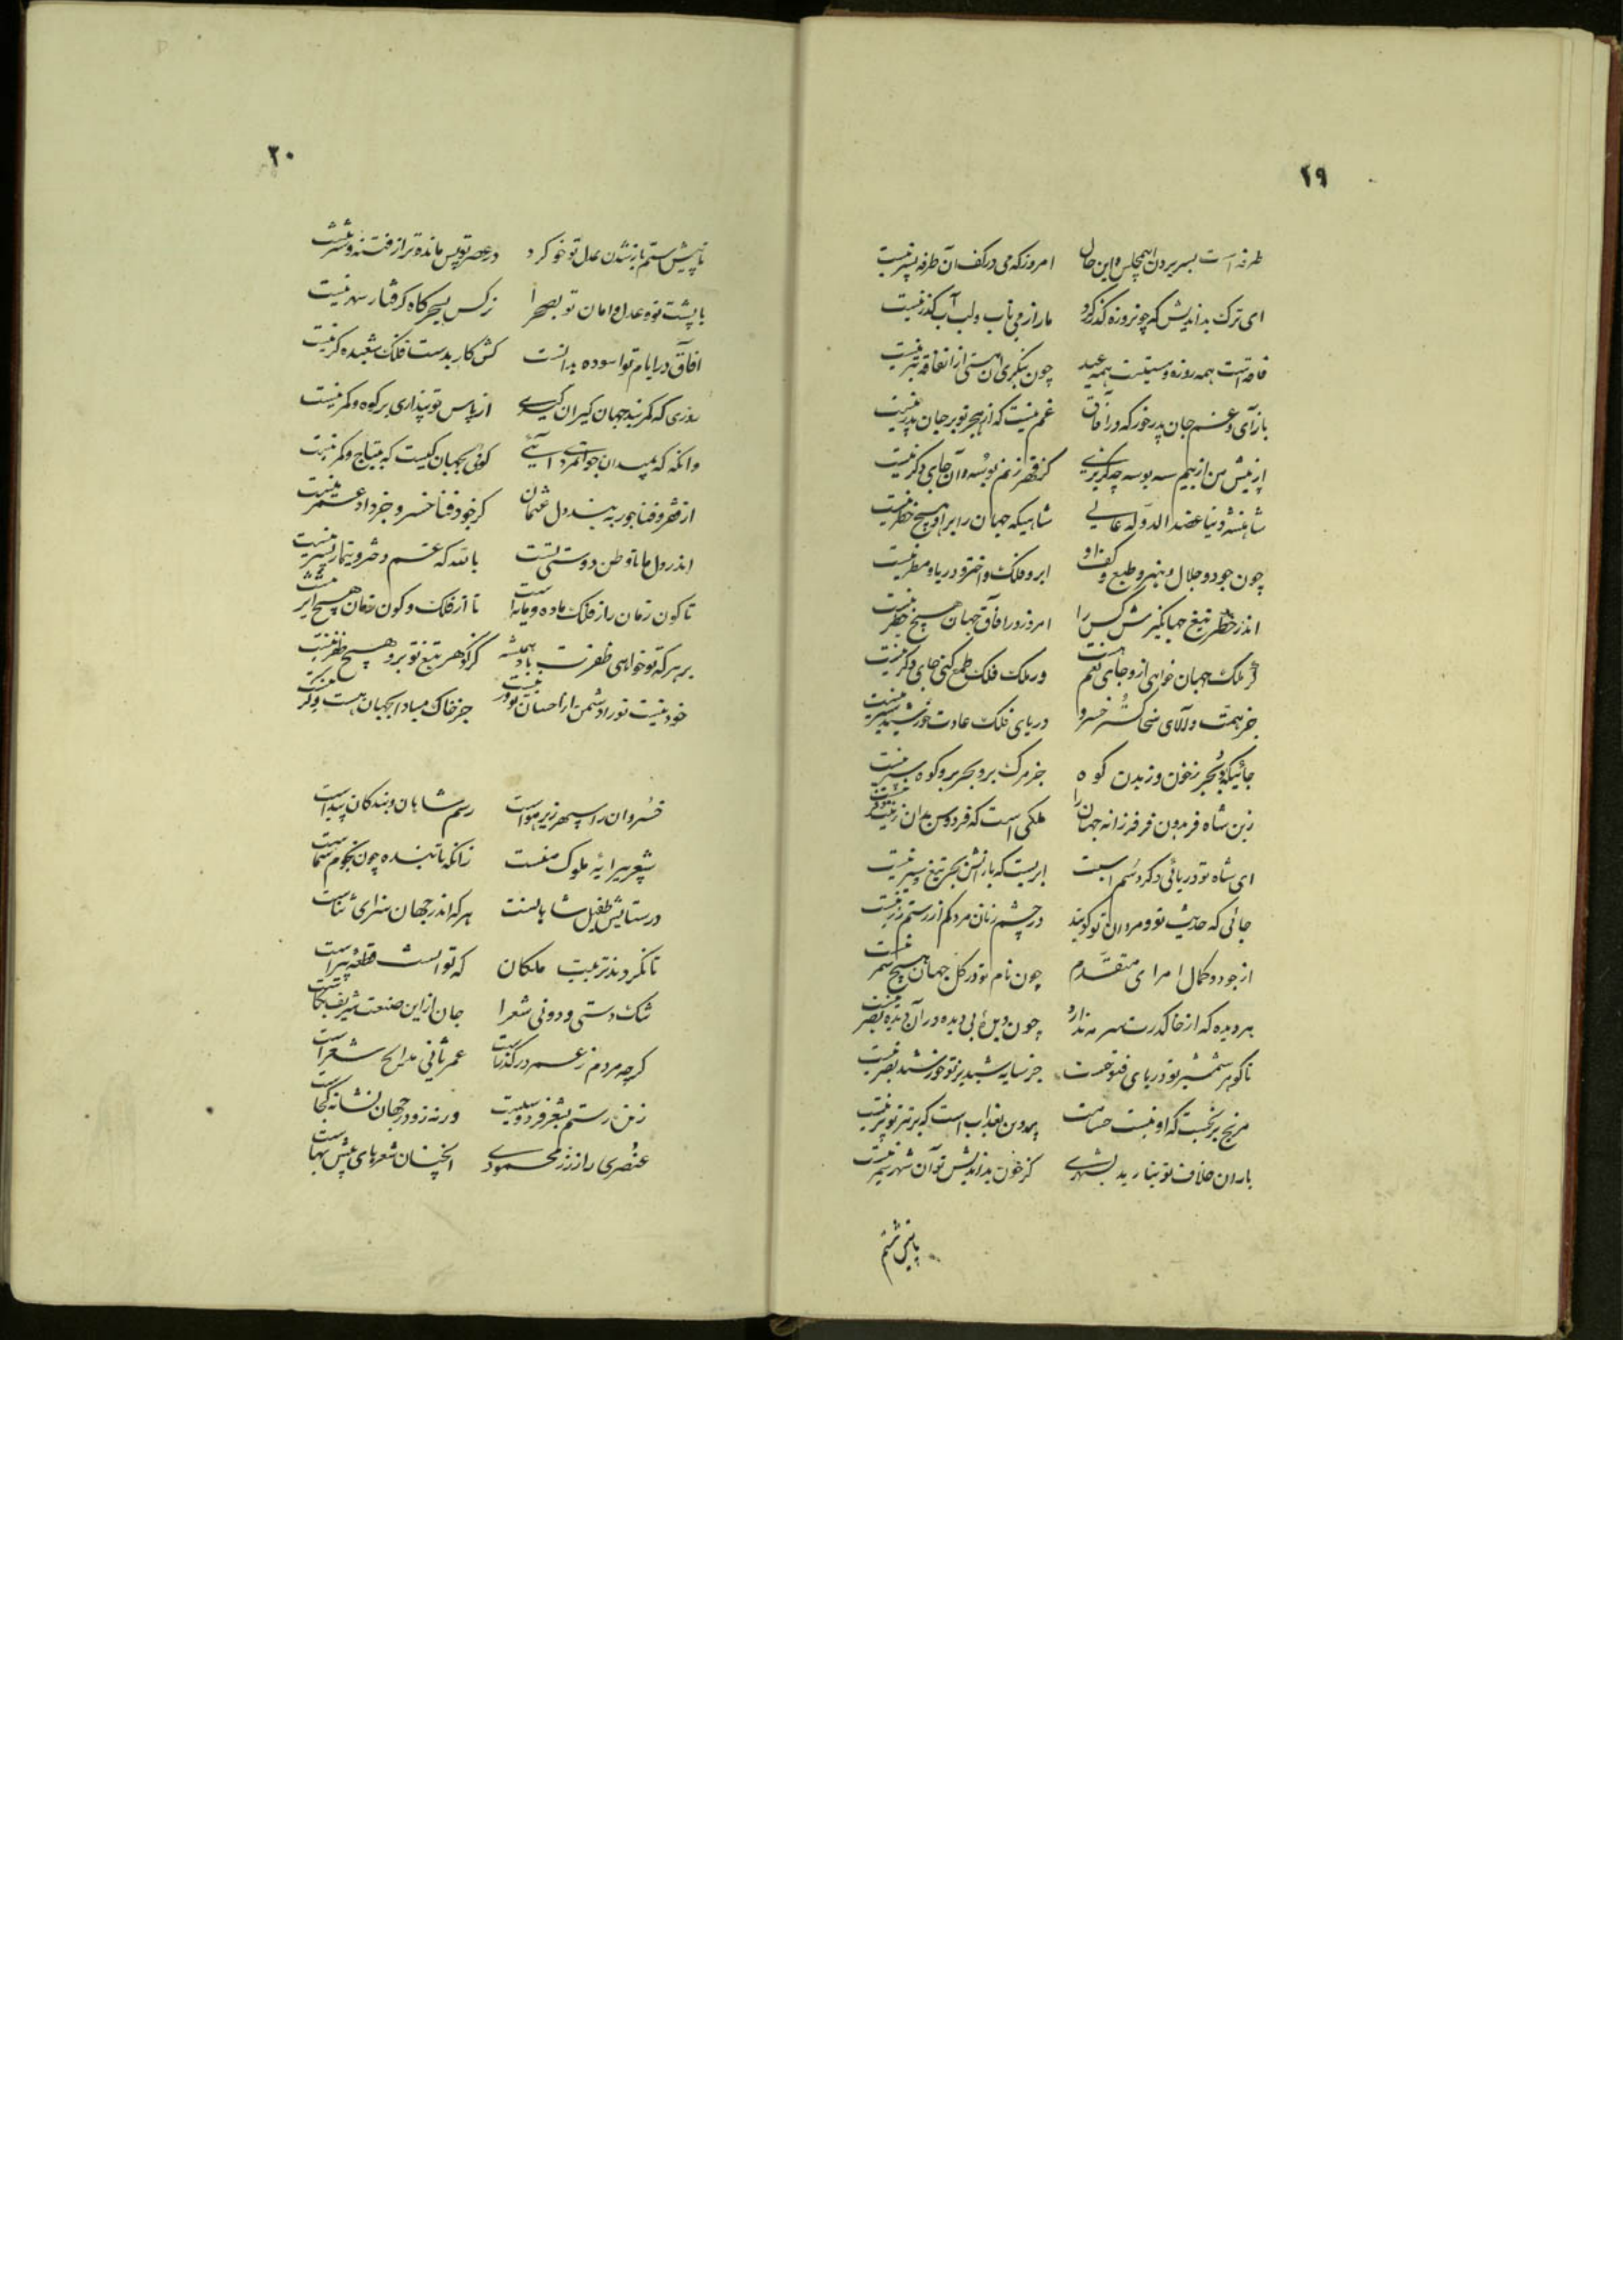 ۲۹
طرفه است بسر بردن اهمچلس و این حال امروز که می در کف آن طرفه پسر نیست
ای ترک بداندیش که چو نروزه گذر کرد ما را ز می ناب و لب آب گذر نیست
فاقه است همه روزه و سیتیست همه عید چون بنگری آن مستی از آن فاقه بتر نیست
بازآی و غم جان پدر خور که در آفاق غم نیست که از هجر تو بر جان پدر نیست
از پیش من از بیم سه بوسه چه گریزی کز قهر زنم بوسه و آن جای دگر نیست
شاهنشه دنیا عضدالدوله عالی شاهیکه جهان را بر او هیچ خطر نیست
چون جود و جلال و هنر و طبع و کف او ابر و فلک و اختر و دریا و مطر نیست
اندر خطر تیغ جهانگیرش کس را امروز در آفاق جهان هیچ خطر نیست
گر ملک جهان خواهی ازو جای نعم هست ور ملک فلک طمع کنی جای دگر نیست
جز همت والای سخا گستر خسرو دریای فلک عادت خورشید سیر نیست
جائیکه بحر ز خون و ز بدن کوه جز مرگ بر و بحر بر و کوه سپر نیست
زین شاه فریدون فر فرزانه جهان را ملکی است که فردوس بدان زینت و فر نیست
ای شاه تو دریائی دگر و سم است ابریست که بارانش بجز تیغ و تبر نیست
جائی که حدیث تو و مردان تو گویند در چشم زنان مرد کم از رستم زر نیست
از جود و کمال امرای متقدم چون نام تو در کل جهان هیچ سمر نیست
هر دیده که از خاک درت سرمه ندارد چون دیده بی دیده در آن دیده بصر نیست
تا گوهر شمشیر تو دریای فتوحست جز سایه شبدیز تو خورشید بصر نیست
مریخ برنجست که او نیست حسامت پروین بعذاب است که بر تیر تو پر نیست
باران خلاف تو نبارید بشهری کز خون بداندیش تو آن شهر شمر نیست
پیش ستم
۳۰
تا پیش ستم باز شدن عدل تو خو کرد در عصر تو پس مانده‌تر از فتنه و شر نیست
با پشت قوه عدل و امان تو بصحرا نرگس بسحرگاه گرفتار سهر نیست
آفاق در ایام تو آسوده بدانست کش کار بدست فلک شعبده گر نیست
روزی که کمر بند جهان گیران گیری از پاس تو پنداری بر کوه و کمر نیست
وانگه که بمیدان جوانمردی آئی گوئی بجهان کیست که بیتاج و کمر نیست
از فقر و فنا جور به بیند دل عثمان گر خود فنا خسرو جز داد عمر نیست
اندر دل ما تا وطن دوستی تست بالله که غم دختر و تیمار پسر نیست
تا کون زمان را ز فلک ماده و مایه است تا از فلک و کون و زمان هیچ اثر نیست
بر هر که تو خواهی ظفرت باد همیشه کز گوهر تیغ تو برو هیچ ظفر نیست
خود نیست تو را دشمن از احسان تو ور نیست جز خاک مبادا بجهان هست و گر نیست
خسروان را سپهر زیر هواست رسم شاهان و بندگان پیداست
شعر پیرایه ملوک منست زانکه پاینده چون نجوم سماست
در ستایش طفیل شاهانست هر که اندر جهان سزای ثناست
تا نکردند تربیت ملکان که توانست قطعه پیراست
شک دستی و دونی شعرا جان از این صنعت شریف بکاست
گرچه مردم ز عمر در گذراست عمر ثانی مدایح شعراست
زین رستم بشعر فردوسیست ورنه زو در جهان نشانه کجاست
عنصری را ز زر محمودی آنچنان شعرهای بیش بهاست